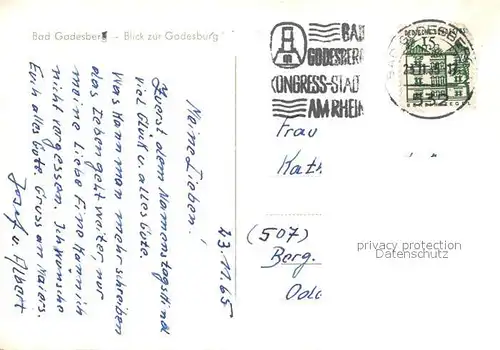 Bad Godesberg - Blick zur Godesburg
23.11.65
Meine Lieben!
Zuerst dem Namenstagskind
viel Glück u. alles Gute.
Was kann man mehr schreiben
das Leben geht weiter, nur
meine liebe Fine kann ich
nicht vergessen. Ich wünsche
Euch alles Gute. Gruss an Maiers.
Josef u. Albert
BAD
GODESBERG
KONGRESS-STADT
AM RHEIN
532
Frau
Kath
(507)
Berg.
Ode
privacy protection
Datenschutz